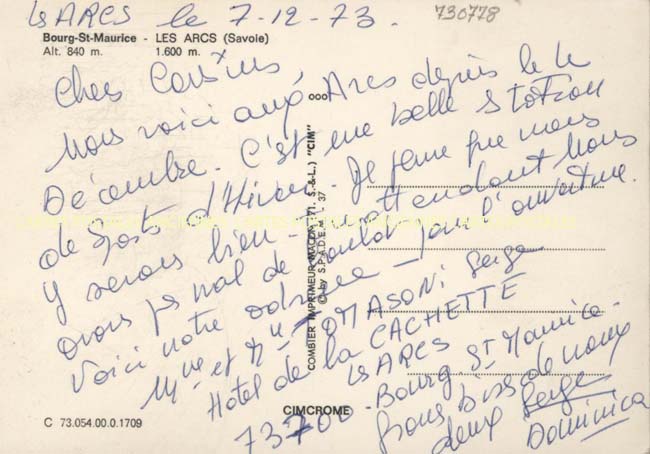 les ARCS le 7-12-73.
730778
Bourg-St-Maurice - LES ARCS (Savoie)
Alt. 840 m. 1.600 m.
Chers Cousins,
Nous voici aux Arcs depuis le 1e
Décembre. C'est une belle station
de Sports d'Hiver. Je pense que nous
y serons bien. En attendant nous
avons pas mal de boulot pour l'ouverture.
Voici notre adresse
Mme et Mr MASONi Serge
Hotel de la CACHETTE
les ARCS
73700 - Bourg St Maurice.
Gros bises de nous
deux Serge
Dominica
COMBIER IMPRIMEUR MACON (71, S.-&-L.) "CIM"
© by S.P.A.D.E.M.
CIMCROME
C 73.054.00.0.1709